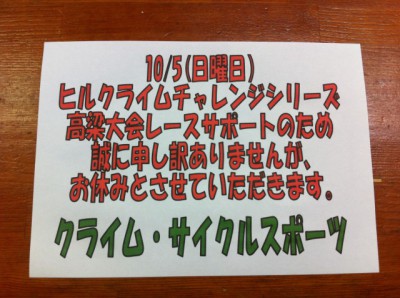 10/5(日曜日)
ヒルクライムチャレンジシリーズ
高梁大会レースサポートのため
誠に申し訳ありませんが、
お休みとさせていただきます。
クライム・サイクルスポーツ